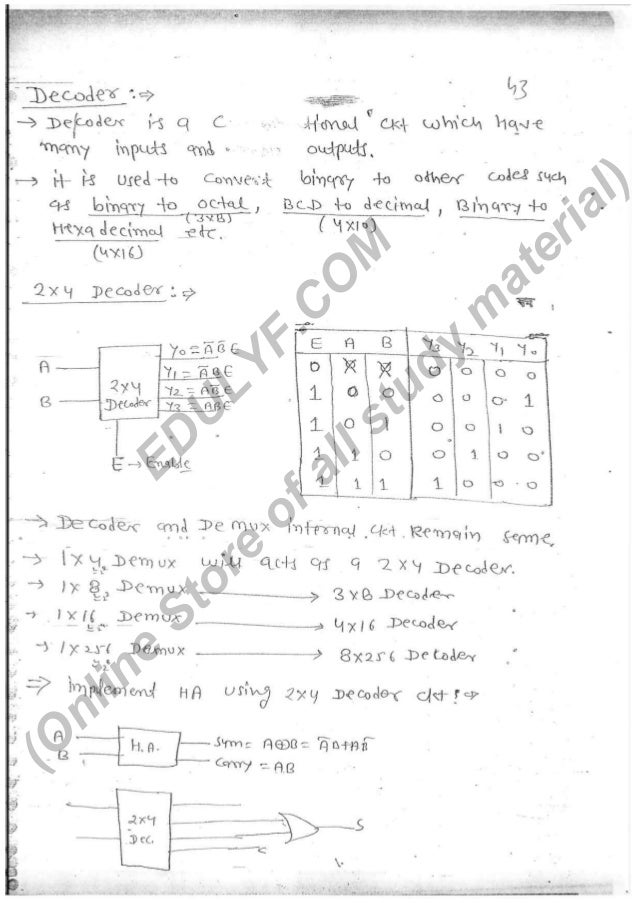 43
Decoder :⇒
→ Decoder is a C tional ckt which have
many inputs and outputs.
→ it is used to convert binary to other codes such
as binary to octal, BCD to decimal, Binary to
(3×8) (4×10)
Hexadecimal etc.
(4×16)
2×4 Decoder :⇒
A
B
2×4
Decoder
Y0 = A̅B̅E
Y1 = A̅BE
Y2 = AB̅E
Y3 = ABE
E → Enable
E A B Y3 Y2 Y1 Y0
0 X X 0 0 0 0
1 0 0 0 0 0 1
1 0 1 0 0 1 0
1 1 0 0 1 0 0
1 1 1 1 0 0 0
→ Decoder and De mux internal ckt. Remain same.
→ 1×4 Demux will acts as a 2×4 Decoder.
→ 1×8 Demux → 3×8 Decoder
→ 1×16 Demux → 4×16 Decoder
→ 1×256 Demux → 8×256 Decoder
⇒ implement HA using 2×4 Decoder ckt :⇒
A
B
H.A.
Sym = A⊕B = A̅B+AB̅
Carry = AB
2×4
Dec.
S
C
EDULYF.COM
(Online Store of all study material)